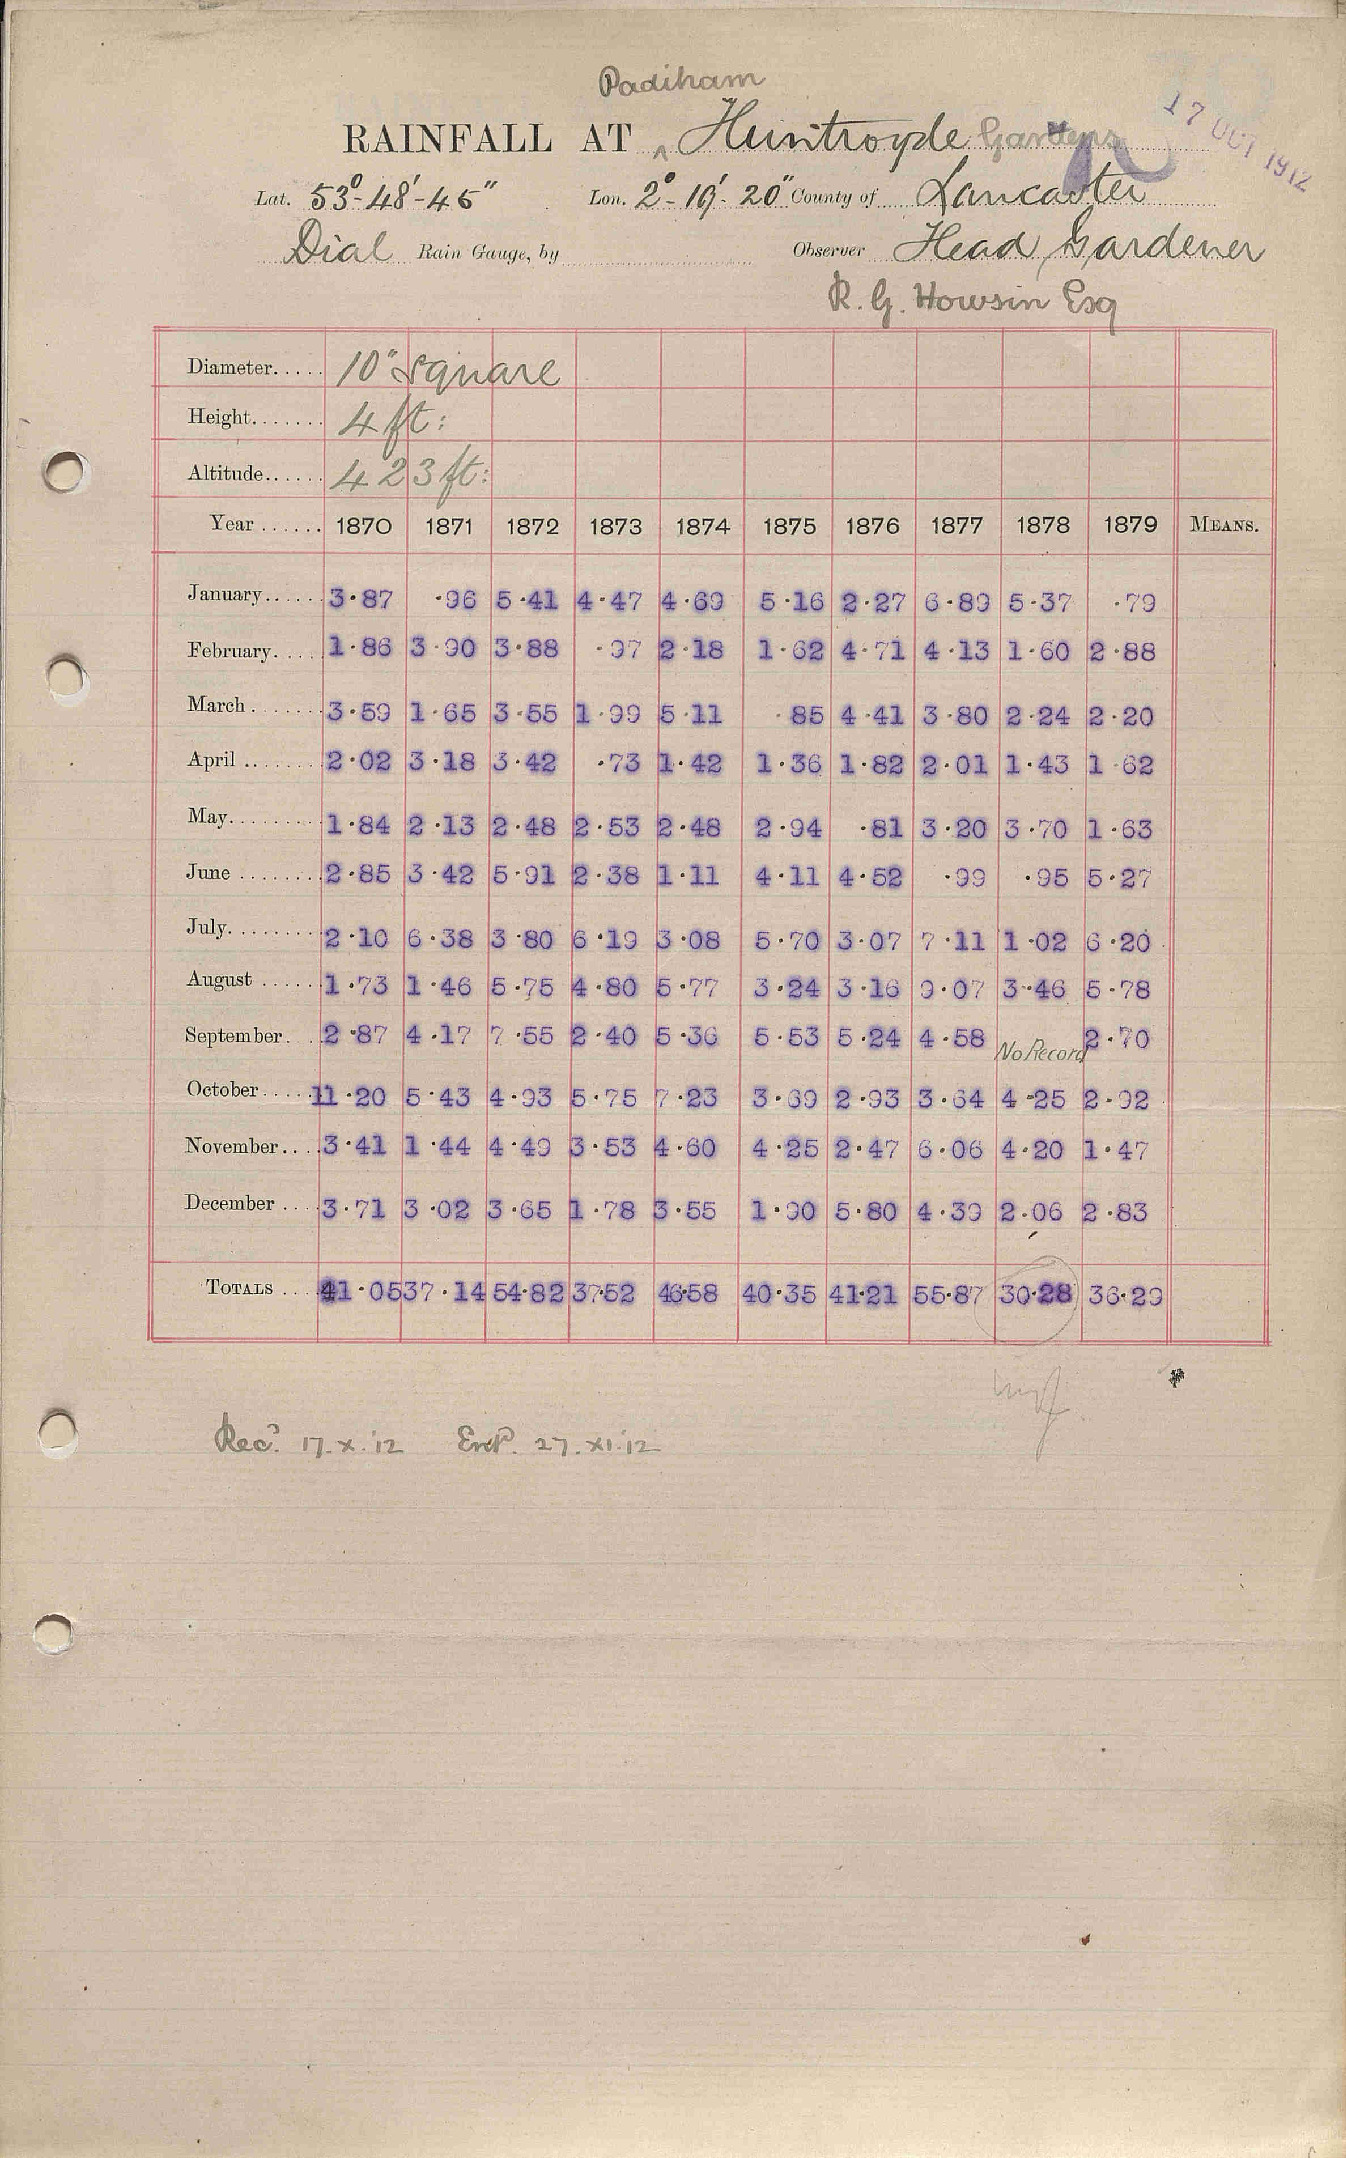 Padiham
RAINFALL AT Huntroyde Gardens
17 OCT 1912
Lat. 53°-48'-45" Lon. 2°-19'-20" County of Lancaster
Dial Rain Gauge, by Observer Head Gardener
R. G. Howsin Esq
Diameter..... 10" square
Height....... 4 ft:
Altitude...... 423 ft:
Year ...... 1870 1871 1872 1873 1874 1875 1876 1877 1878 1879 MEANS.
January...... 3·87 ·96 5·41 4·47 4·69 5·16 2·27 6·89 5·37 ·79
February..... 1·86 3·90 3·88 ·97 2·18 1·62 4·71 4·13 1·60 2·88
March ....... 3·59 1·65 3·55 1·99 5·11 ·85 4·41 3·80 2·24 2·20
April ........ 2·02 3·18 3·42 ·73 1·42 1·36 1·82 2·01 1·43 1·62
May......... 1·84 2·13 2·48 2·53 2·48 2·94 ·81 3·20 3·70 1·63
June ........ 2·85 3·42 5·91 2·38 1·11 4·11 4·52 ·99 ·95 5·27
July......... 2·10 6·38 3·80 6·19 3·08 5·70 3·07 7·11 1·02 6·20
August ...... 1·73 1·46 5·75 4·80 5·77 3·24 3·16 9·07 3·46 5·78
September... 2·87 4·17 7·55 2·40 5·36 5·53 5·24 4·58 No Record 2·70
October ..... 11·20 5·43 4·93 5·75 7·23 3·69 2·93 3·64 4·25 2·92
November.... 3·41 1·44 4·49 3·53 4·60 4·25 2·47 6·06 4·20 1·47
December .... 3·71 3·02 3·65 1·78 3·55 1·90 5·80 4·39 2·06 2·83
TOTALS ... 41·05 37·14 54·82 37·52 46·58 40·35 41·21 55·87 30·28 36·29
Rec? 17.X.'12 Entd. 27.XI.'12